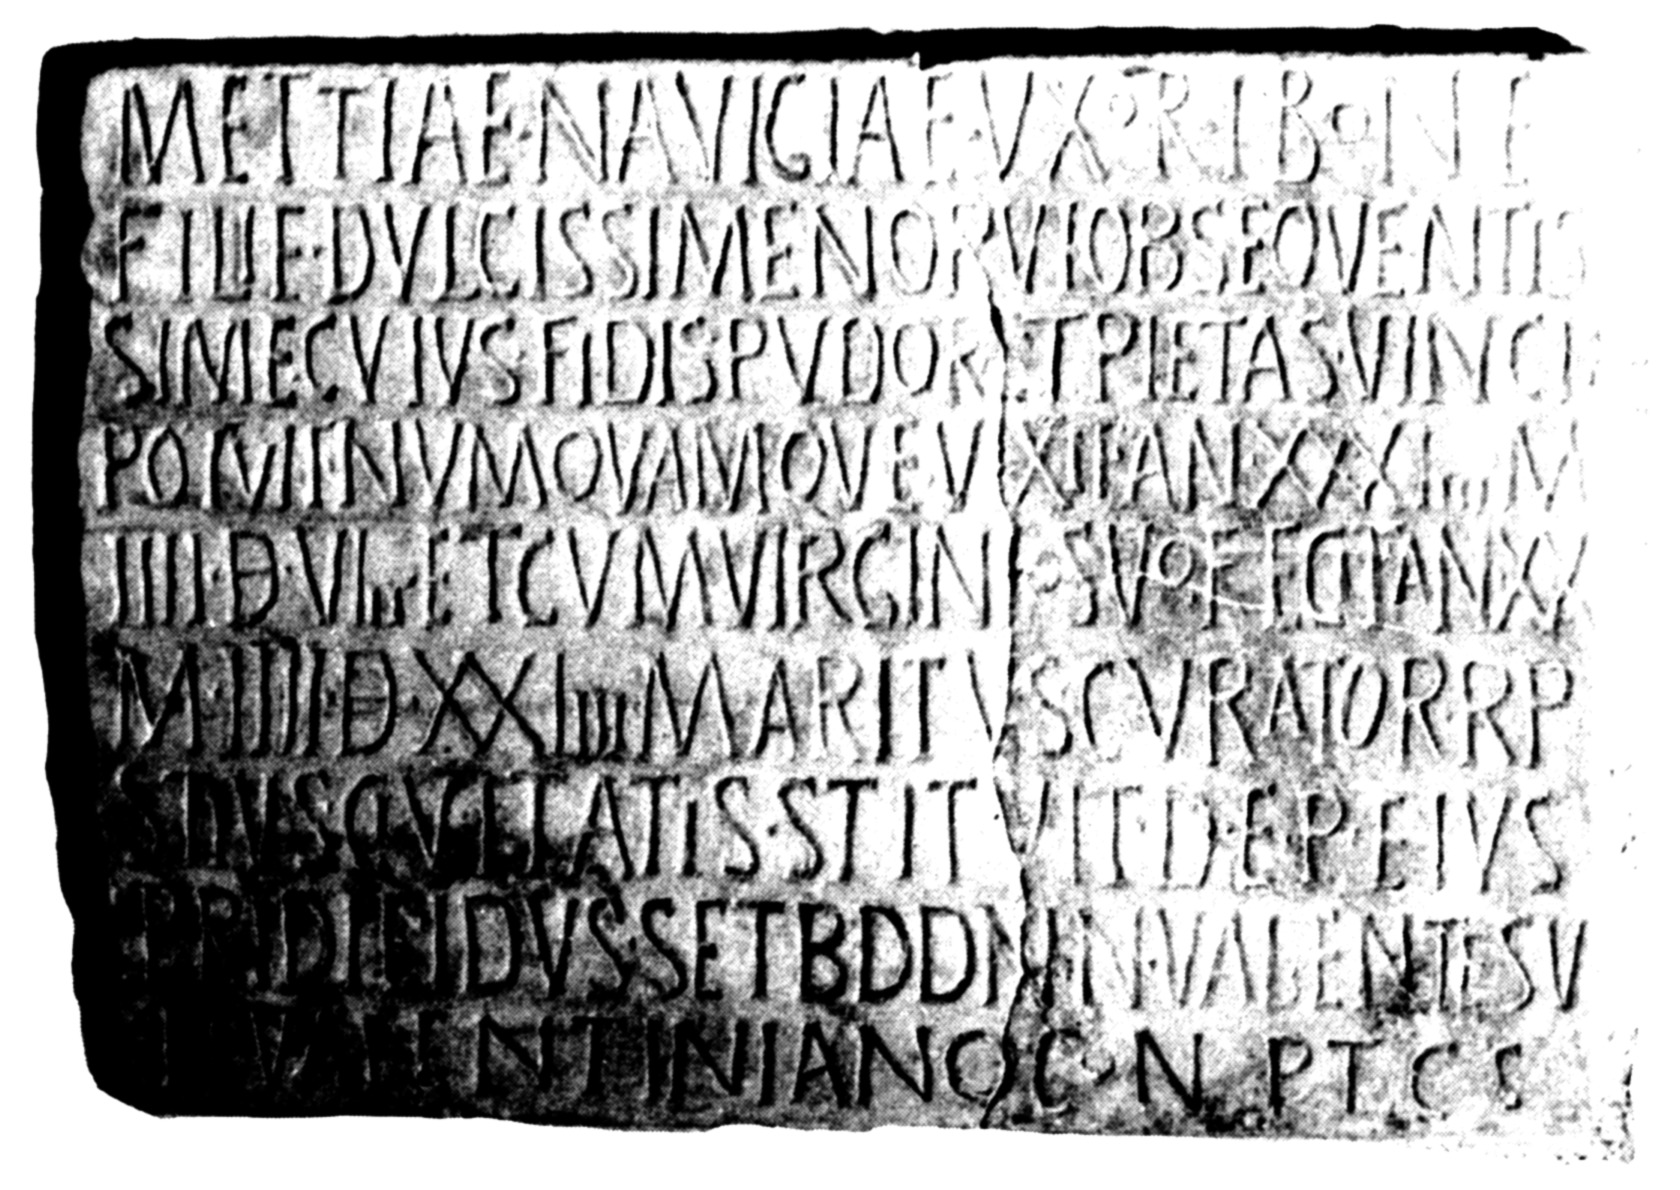 METTIAE·NAVIGIAE·VXORI·BONE
FILIE·DVLCISSIMENORVIOBSEQVENTIS
SIMECVIVS·FIDIS·PVDORETPIETAS·VINCI
POTVITNVMQVAMQVE·VIXITANXXXIIIIM
IIII·D·VIIII·ETCVMVIRGINIOSVOFECITANXX
M·IIII·D·XXIIIII·MARITVSCVRATOR·RP
STIVSCIVITATIS·STITVIT·D·EP·EIVS
PRIDIEIDVS·SETBDDNNVALENTESV
VALENTINIANOCON PTCS